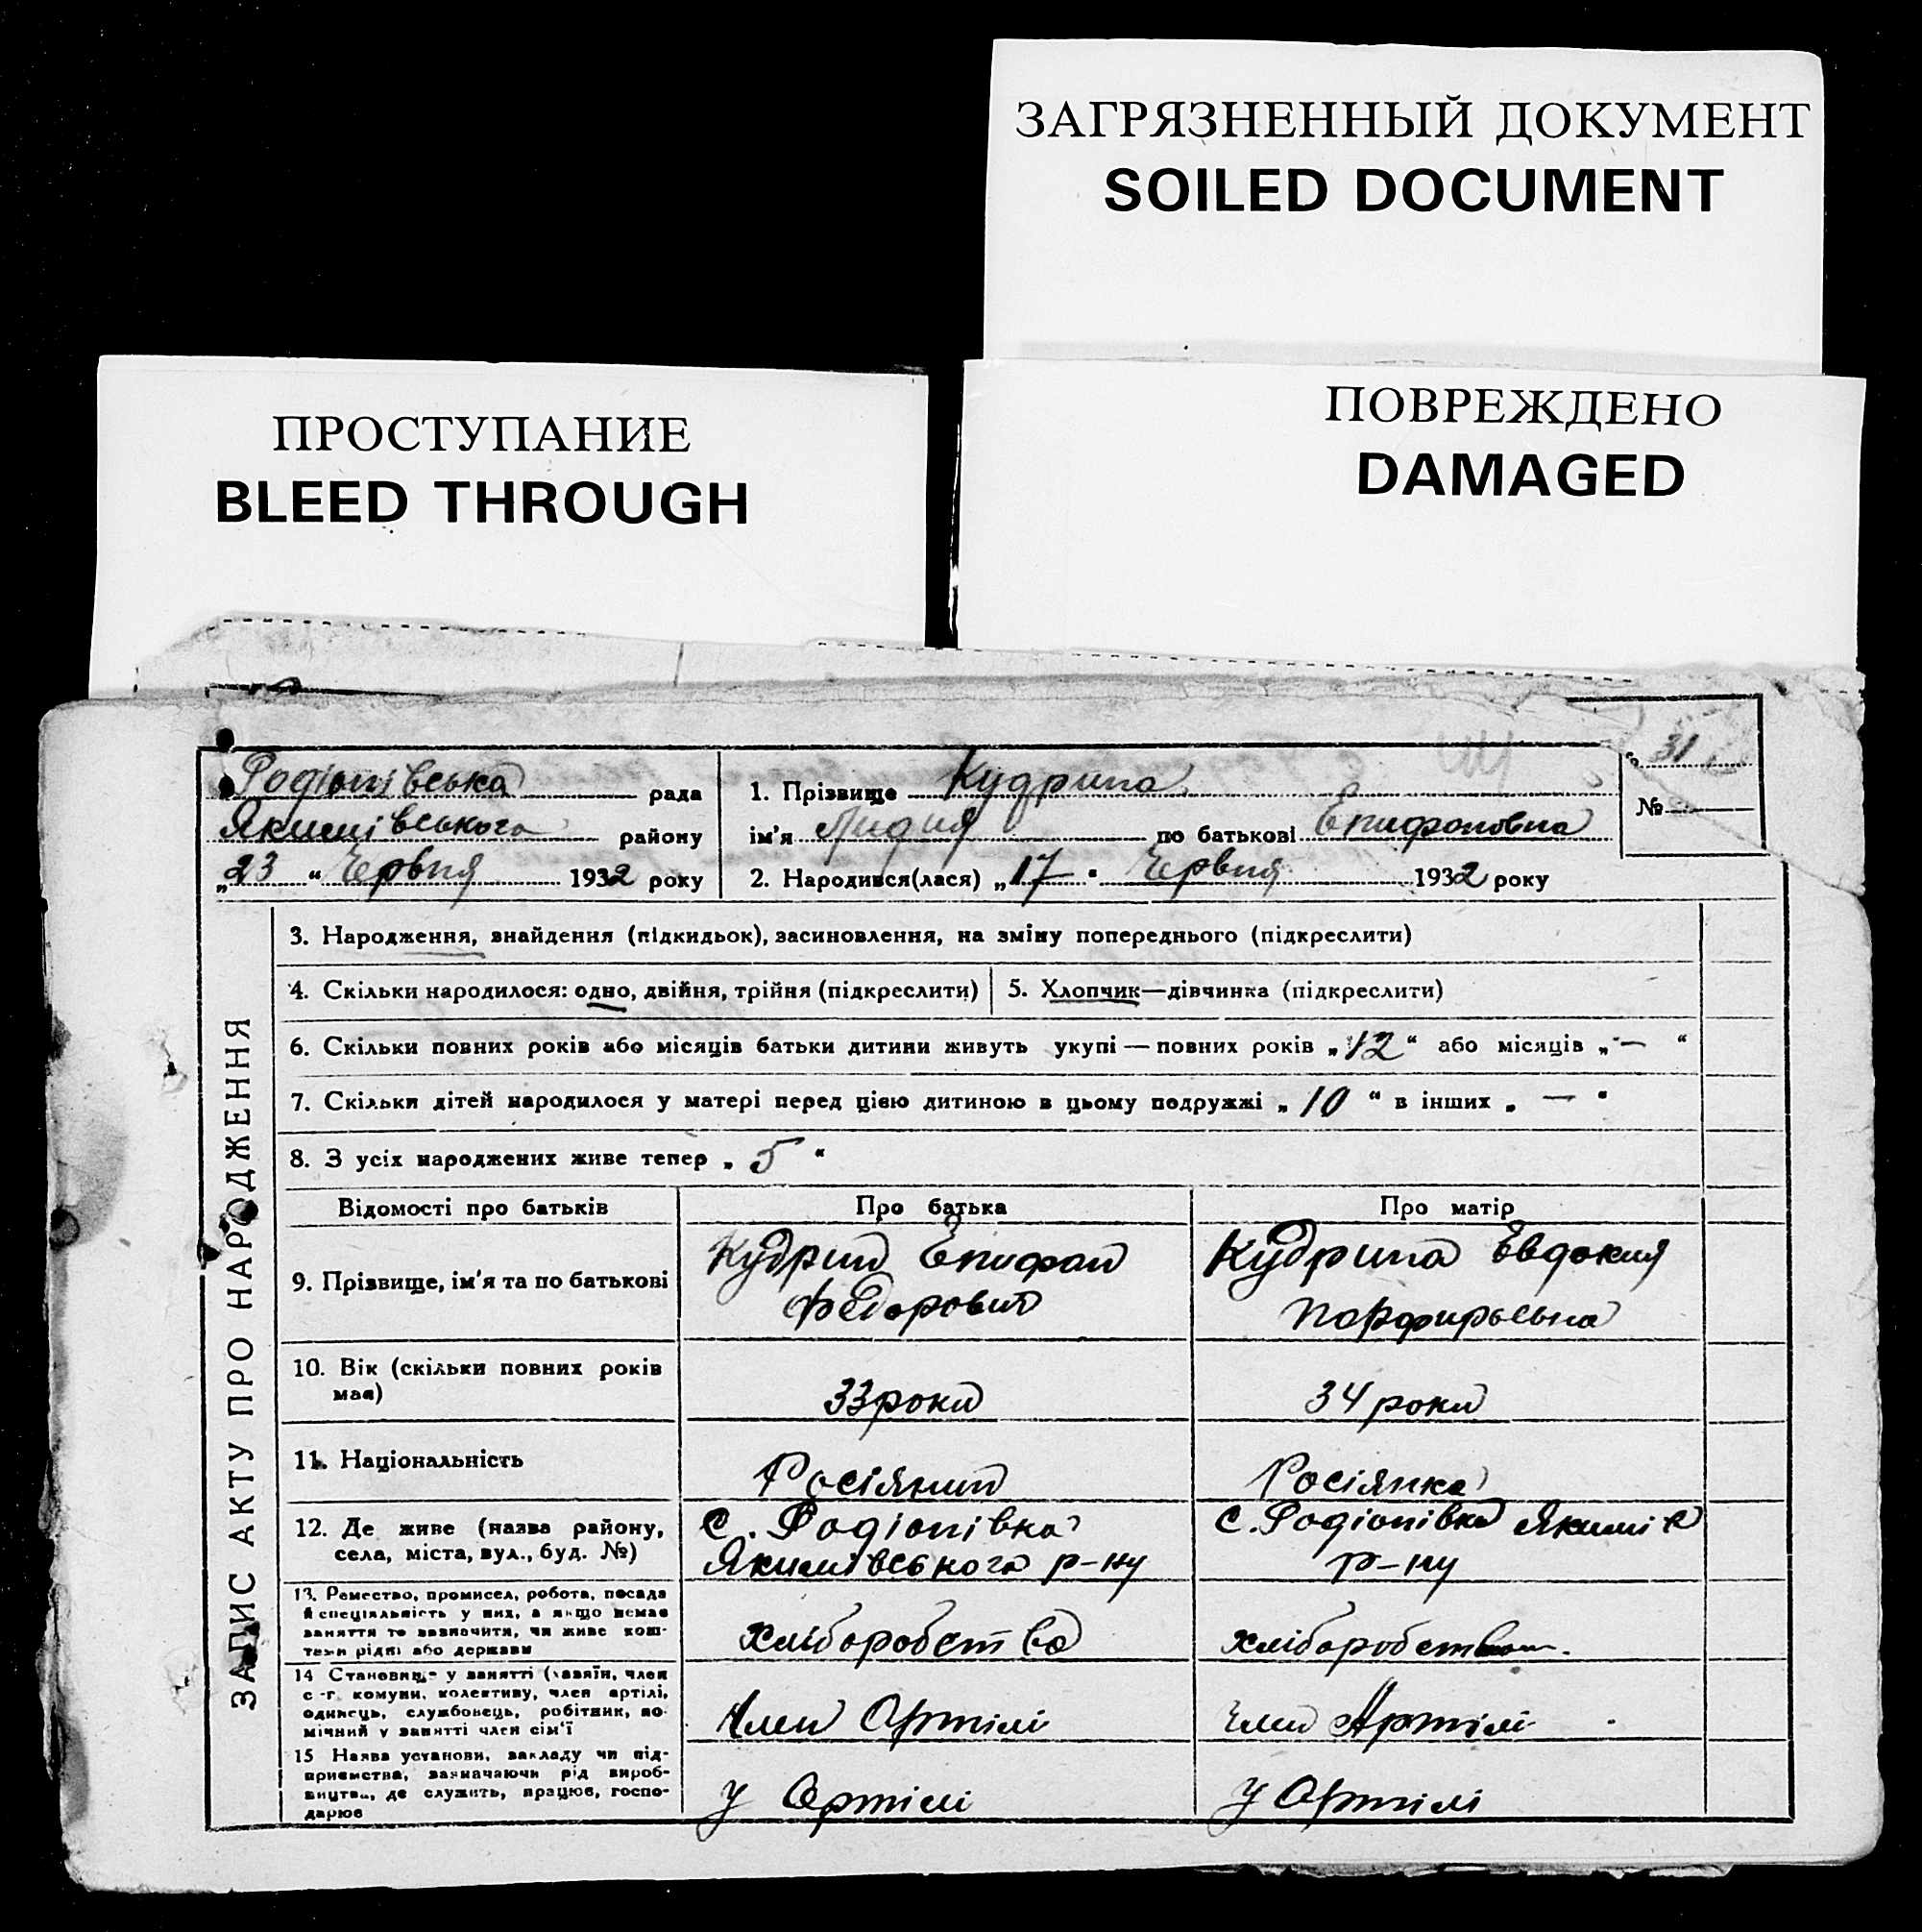 ЗАГРЯЗНЕННЫЙ ДОКУМЕНТ
SOILED DOCUMENT
ПОВРЕЖДЕНО
DAMAGED
ПРОСТУПАНИЕ
BLEED THROUGH
ЗАПИС АКТУ ПРО НАРОДЖЕННЯ
Родіонівська рада
Якимівського району
„23“ Червня 1932 року
1. Прізвище Кудрина
ім'я Лидия по батькові Епифоновна
2. Народився(лася) „17" Червня 1932 року
31
№
3. Народження, знайдення (підкидьок), засиновлення, на зміну попереднього (підкреслити)
4. Скільки народилося: одно, двійня, трійня (підкреслити)
5. Хлопчик—дівчинка (підкреслити)
6. Скільки повних років або місяців батьки дитини живуть укупі — повних років „12“ або місяців „—“
7. Скільки дітей народилося у матері перед цією дитиною в цьому подружжі „10“ в інших „—"
8. З усіх народжених живе тепер „5“
Відомості про батьків Про батька Про матір
9. Прізвище, ім'я та по батькові
Кудрин Епифан
Федорович
Кудрина Евдокия
Порфирьевна
10. Вік (скільки повних років
має)
33 роки
34 роки
11. Національність
Росіянин
Росіянка
12. Де живе (назва району,
села, міста, вул., буд. №)
с. Родіонівка
Якимівського р-ну
с. Родіонівка Якимів
р-ну
13. Ремество, промисел, робота, посада
й спеціяльність у них, а якщо немає
заняття то зазначити, чи живе кош-
тами рідні або держави
хліборобство
хліборобство
14 Становище у занятті (хазяїн, член
с.-г. комуни, колективу, член артілі,
одинець, службовець, робітник, по-
мічний у занятті член сім'ї
Член Артілі
Член Артілі
15 Назва установи, закладу чи під-
приємства, зазначаючи рід вироб-
ництва, де служить, працює, госпо-
дарює
У Артілі
У Артілі